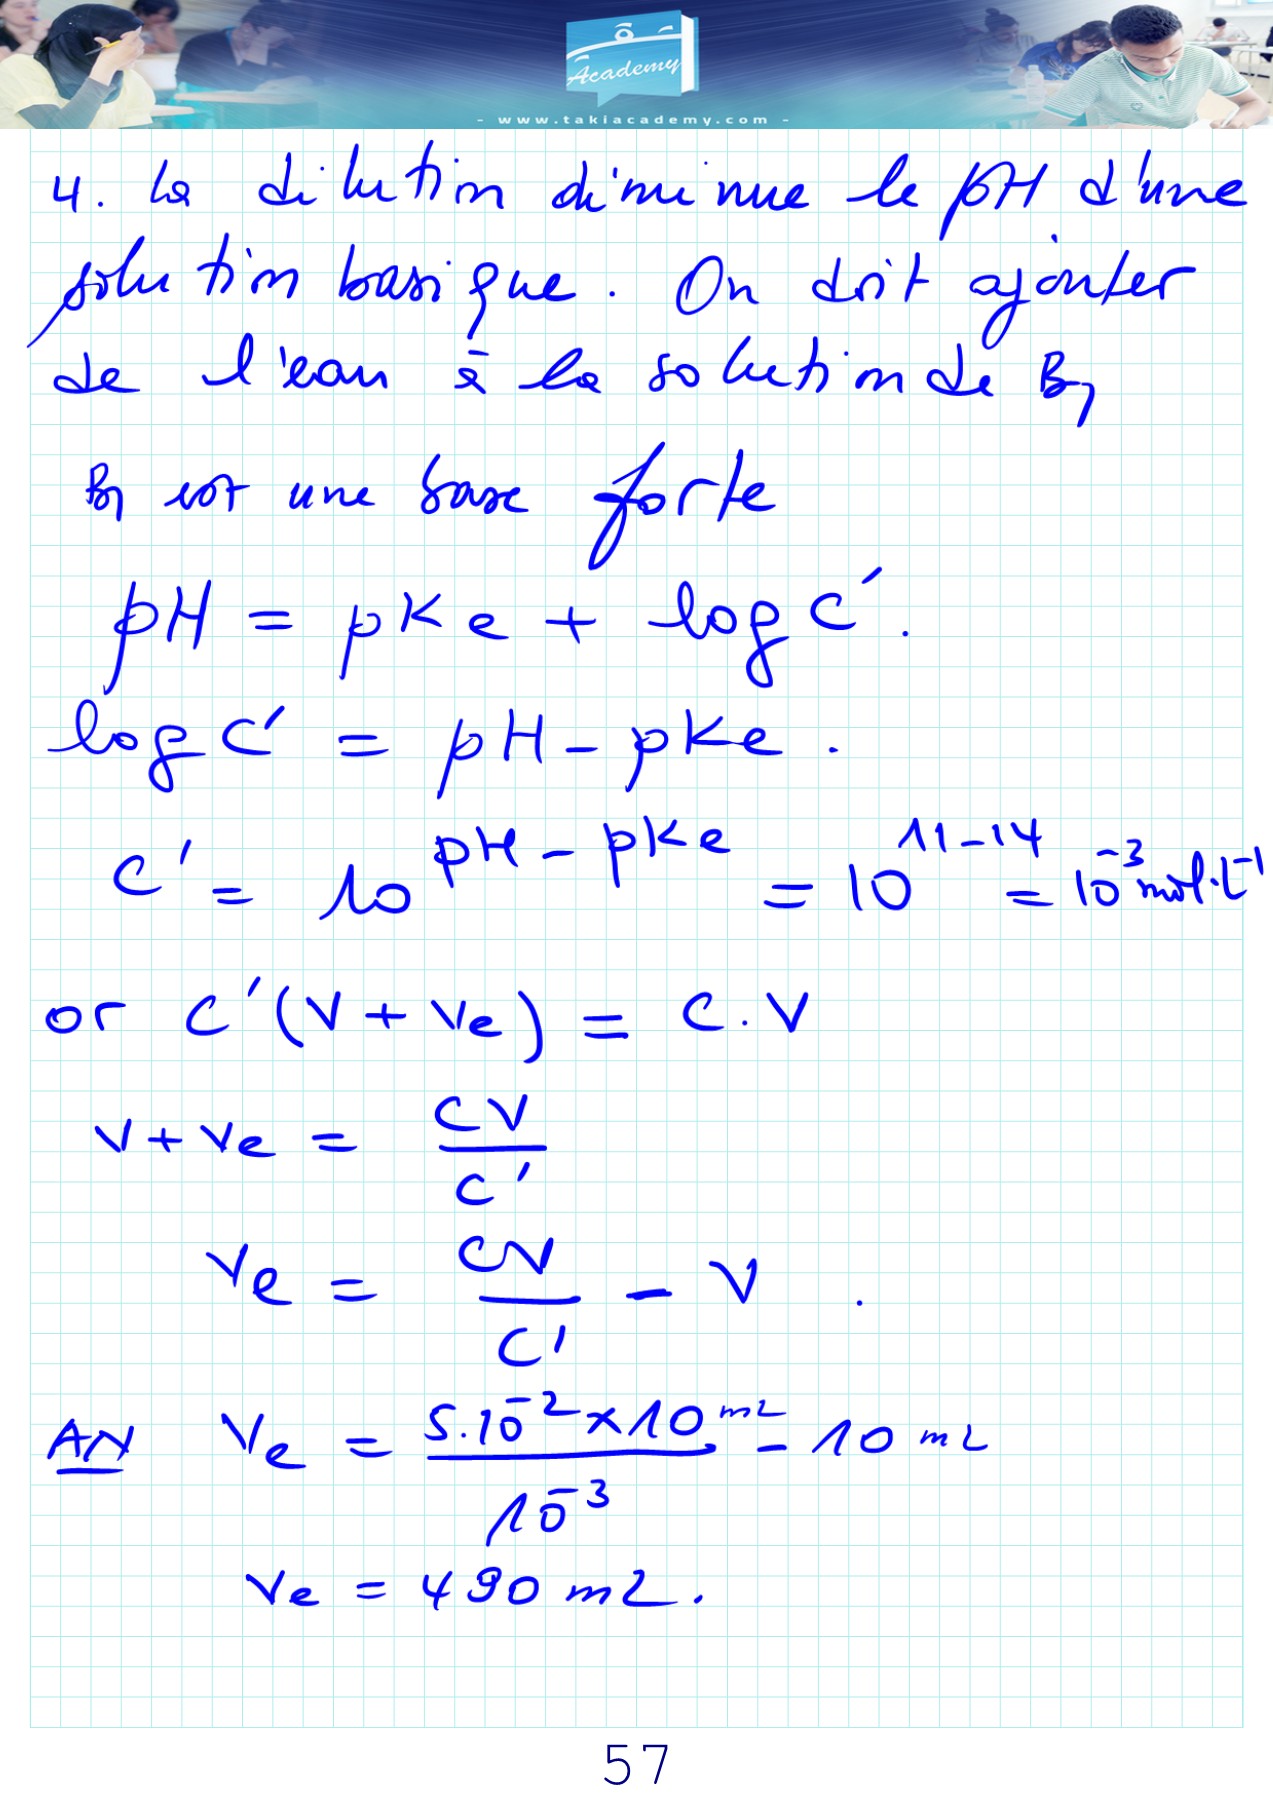 Academy
- www.takiacademy.com -
4. La dilution diminue le pH d'une
solution basique. On doit ajouter
de l'eau à la solution de B1
B1 est une base forte
pH = pKe + log C'.
log C' = pH - pKe.
C' = 10^(pH - pKe) = 10^(11-14) = 10^-3 mol.L^-1
or C'(V + Ve) = C.V
V + Ve = CV / C'
Ve = CV / C' - V.
AN Ve = 5.10^-2 x 10 mL / 10^-3 - 10 mL
Ve = 490 mL.
57